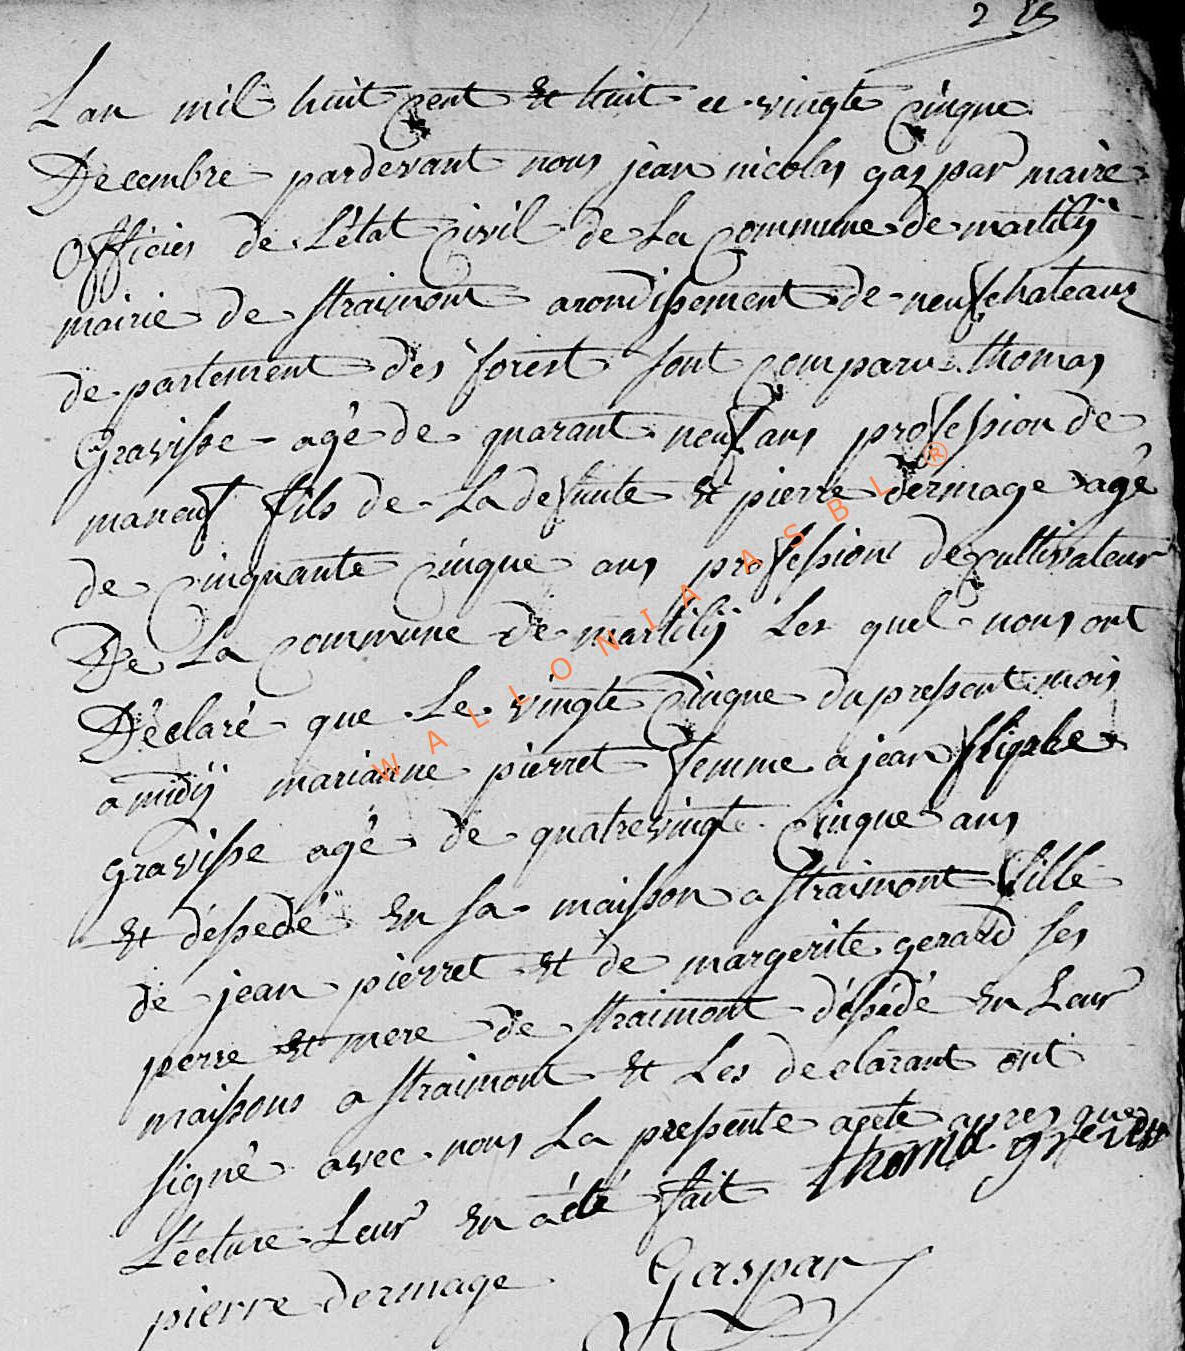 Lan mil huit cent et huit et vingte cinque
Decembre pardevant nous jean nicolas gaspar maire
officier de L'état civil de La commune de martilÿ
mairie de straimont arondissement de neufchateaux
departement des forest sont comparu thomas
gravisse agé de quarant neuf ans profession de
maneuf fils de La defunte et pierre dermage agé
de cinquante cinque ans profession de cultivateur
De La commune de martilÿ Les quel nous ont
Déclaré que Le vingte cinque du present mois
a midÿ marianne pierret femme a jean
gravisse agé de quatrevingte cinque ans
et déssedé En sa maisson a straimont fille
de jean pierret et de margerite gerard ses
perre et mere de straimont déssédé En Leur
maissons a straimont et Les declarant ont
signé avec nous La presente acete apres que
Lécture Leur En a été fait thoma
pierre dermage Gaspar
WALLONIA ASBL ®